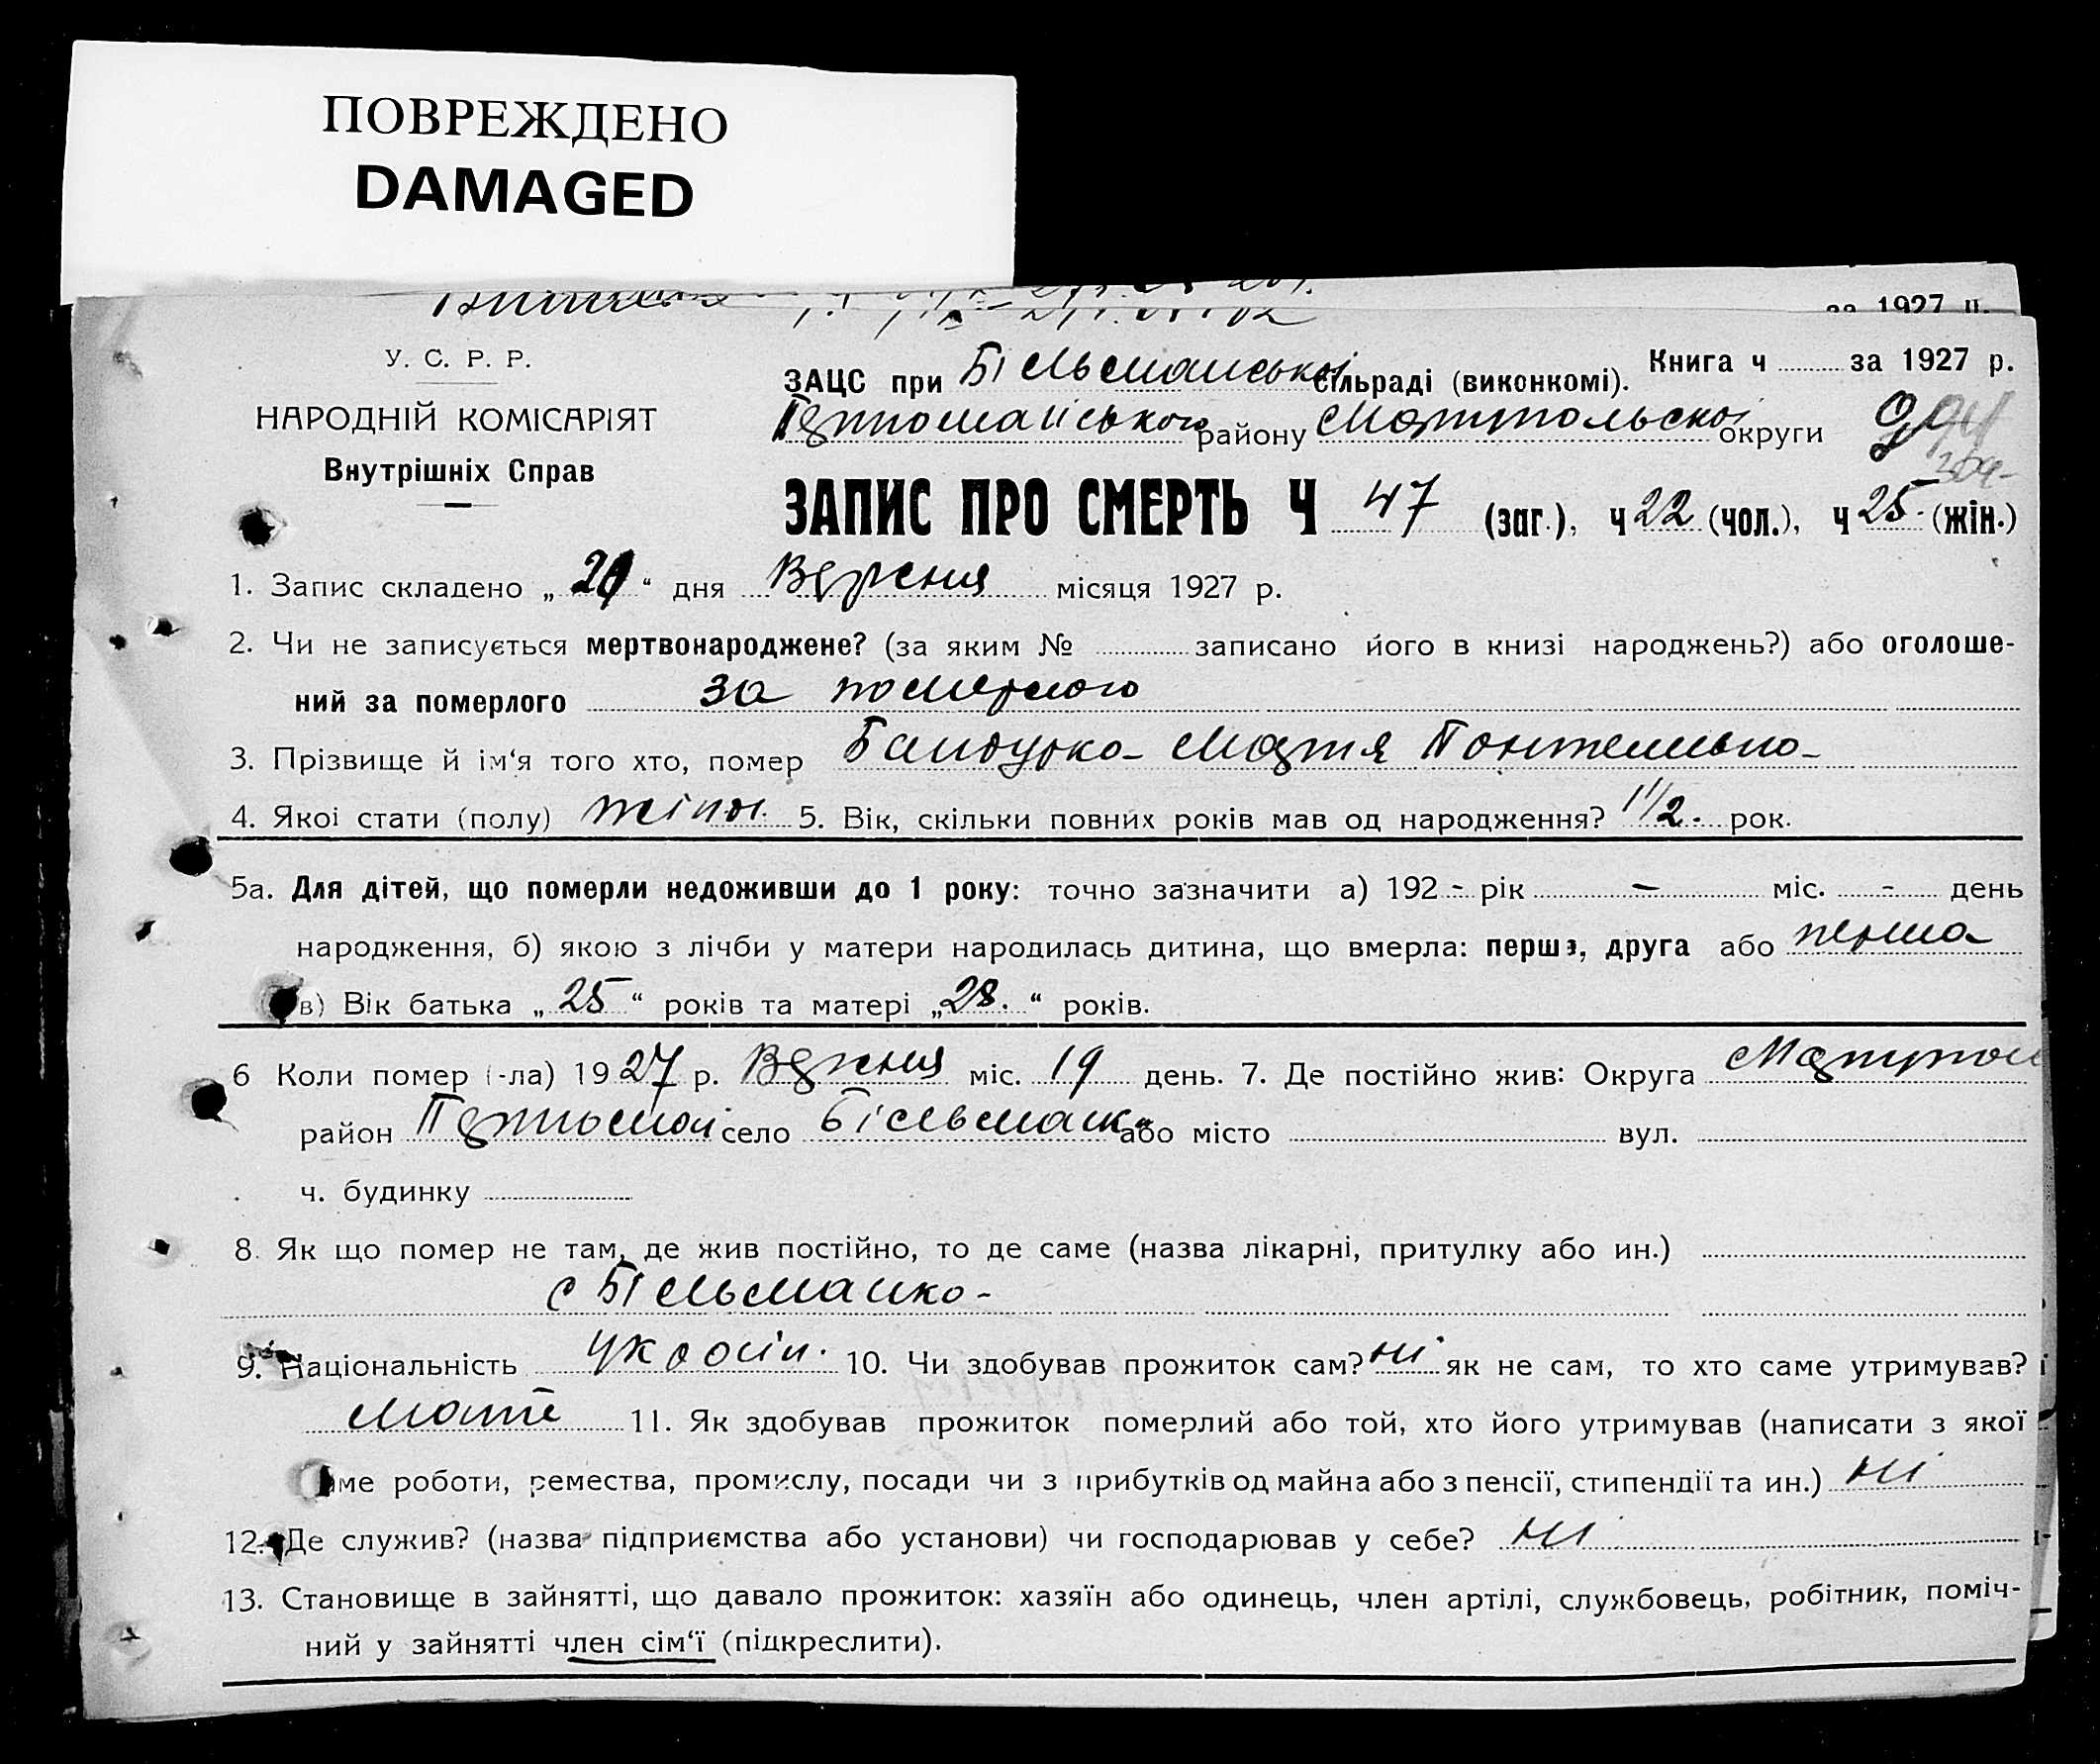 ПОВРЕЖДЕНО
DAMAGED
за 1927 р.
У. С. Р. Р.
НАРОДНІЙ КОМІСАРІЯТ
Внутрішніх Справ
Книга ч за 1927 р.
ЗАЦС при Більманської сільраді (виконкомі).
району округи
ЗАПИС ПРО СМЕРТЬ Ч 47 (заг.), ч 22 (чол.), ч 25 (жін.)
1. Запис складено „ “ дня Вересня місяця 1927 р.
2. Чи не записується мертвонароджене? (за яким № записано його в книзі народжень?) або оголоше-
ний за померлого за померлого
3. Прізвище й ім‘я того хто, помер Бандурка
4. Якої стати (полу) жіноч. 5. Вік, скільки повних років мав од народження? 1 1/2. рок.
5а. Для дітей, що померли недоживши до 1 року: точно зазначити а) 192 - рік — міс. - день
народження, б) якою з лічби у матери народилась дитина, що вмерла: перша, друга або перша
в) Вік батька „ 25 “ років та матері „ 28. “ років.
6 Коли помер (-ла) 1927 р. Вересня міс. 19 день. 7. Де постійно жив: Округа
район село Більманка або місто вул.
ч. будинку
8. Як що помер не там, де жив постійно, то де саме (назва лікарні, притулку або ин.)
с Більманка -
9. Національність україн. 10. Чи здобував прожиток сам? ні як не сам, то хто саме утримував?
Мати 11. Як здобував прожиток померлий або той, хто його утримував (написати з якої
саме роботи, ремества, промислу, посади чи з прибутків од майна або з пенсії, стипендії та ин.) ні
12. Де служив? (назва підприємства або установи) чи господарював у себе? ні
13. Становище в зайнятті, що давало прожиток: хазяїн або одинець, член артілі, службовець, робітник, поміч-
ний у зайнятті член сім‘ї (підкреслити).